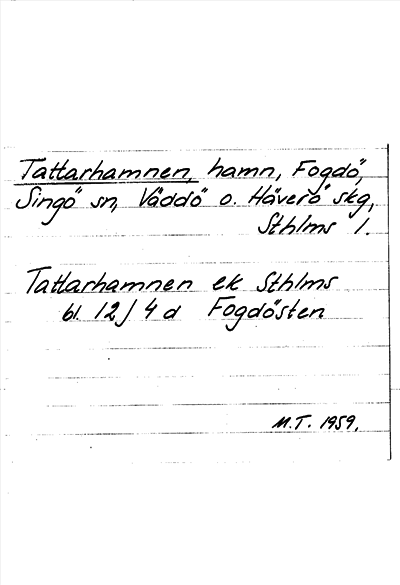 Tattarhamnen, hamn, Fogdö,
Singö sn, Väddö o. Häverö skg,
Sthlms l.
Tattarhamnen ek Sthlms
bl. 12 J 4 d Fogdösten
M.T. 1959.